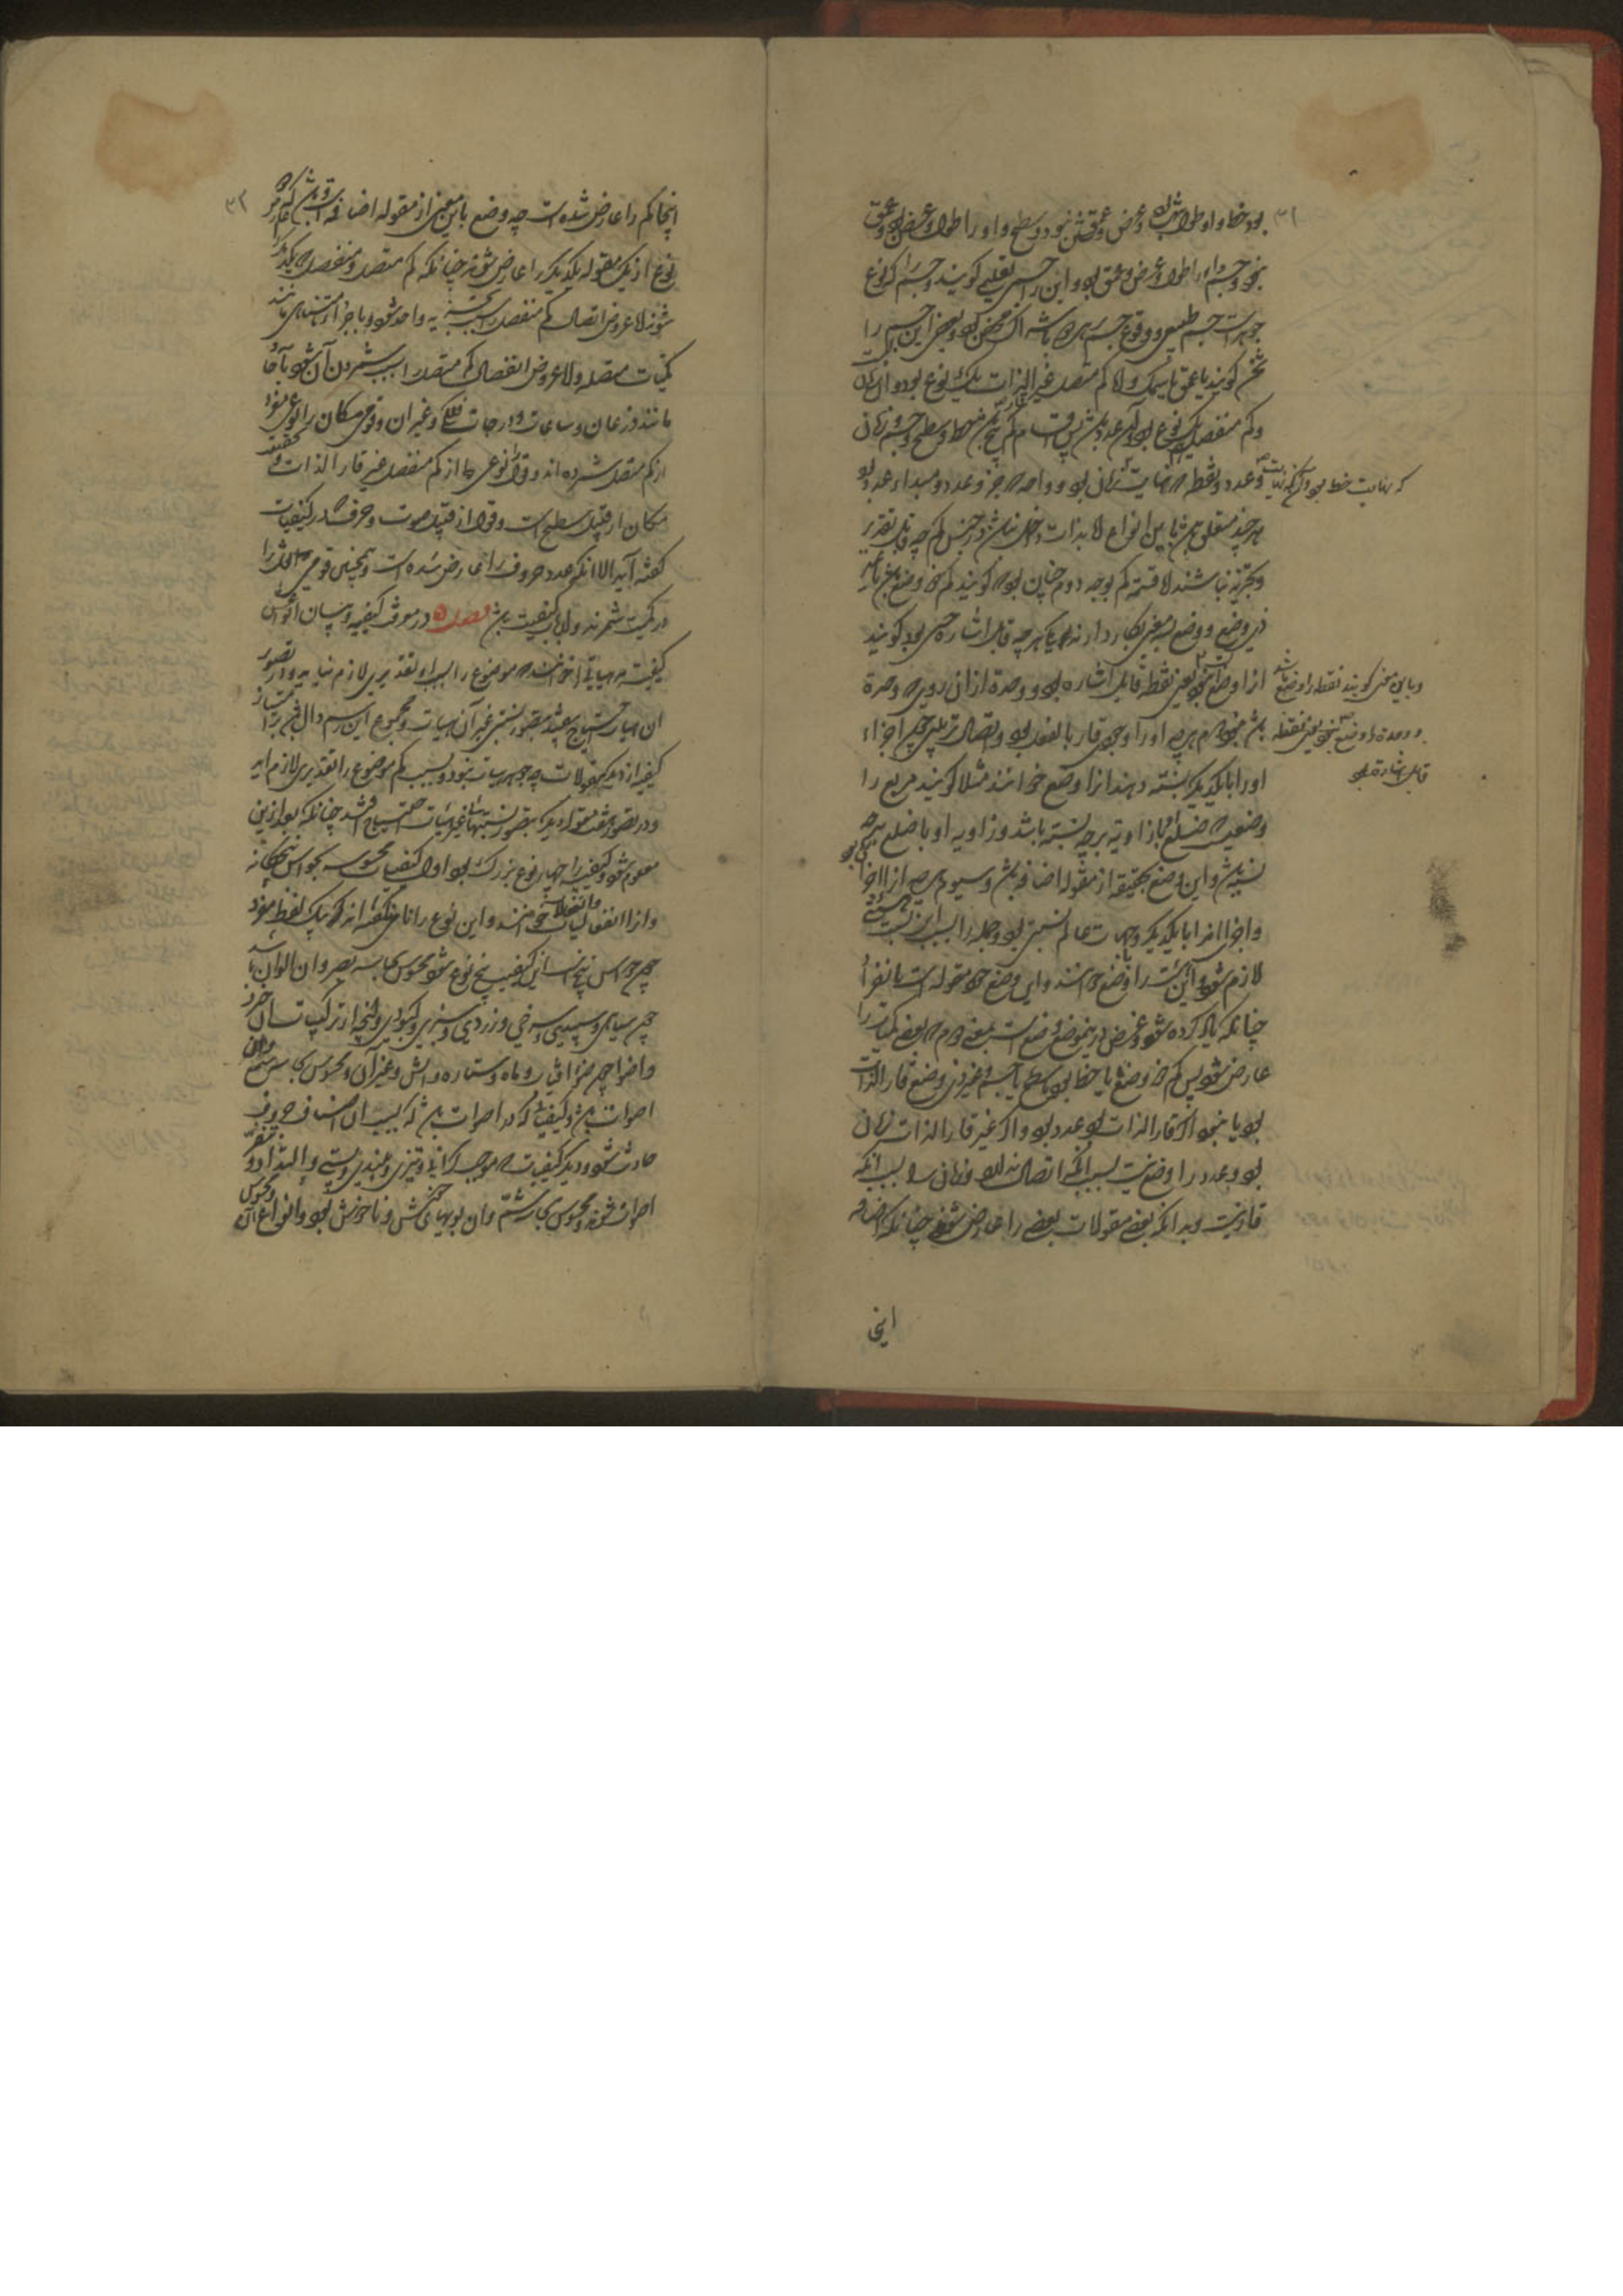 بود خط و او طول باشد و عرض و عمقش نبود و سطح و او را طول و عرض بود و عمق
نبود و جسم و او را طول و عرض و عمق بود و این را جسم تعلیمی گویند و جسم که نوع
جوهرست جسم طبیعی و وقوع جسم برین هر دو باشتراک محض بود و بعضی این جسم را
ثخن گویند یا عمق یا سمک و اما کم متصل غیر قار الذات یک نوع بود و آن زمان
و کم منفصل یک نوع بود و آن عدد باشد پس اقسام کم پنج بود خط و سطح و جسم و زمان
و عدد و نقطه و آن که نهایت زمان بود و واحد که جزو عدد و مبداء عدد بود
که نهایت خط بود
هر چند متعلق باشند باین انواع اما بذات داخل نباشند در جنس کم چه قابل تقدیر
و تجزیه نباشند اما قسمت کم بوجه دوم چنان بود که گویند کم ذو وضع بود یا غیر
ذی وضع و وضع بسه معنی بکار دارند یکی هر چه قابل اشاره حسی بود گویند
او را وضع است یعنی نقطه قابل اشاره بود و وحدت از آن روی که وحدت
و باین معنی گویند نقطه را وضع باشد
و وحدت را وضع نبود یعنی نقطه
قابل اشارت بود
باشد نبود دوم هر چه او را وجودی قار بالفعل بود و اتصال و ترتیبی چون اجزاء
او را با یکدیگر نسبت دهند آنرا وضع خوانند مثلا گویند مربع را
وضعیست که ضلع او با زاویه بر چه نسبت باشد و زاویه او با ضلع بر چه
نسبت باشد و این وضع بحقیقت از مقوله اضافه باشد و سیوم هر چه آنرا اجزا بود
و اجزا را با یکدیگر و جهات عالم نسبتی بود و جمله را بسبب آن نسبت هیئتی
لازم شود آن هیئت را وضع خوانند و این وضع خود مقوله است بانفراد
چنانکه یاد کرده شود و غرض درین موضع وضعست بمعنی دوم که بعضی کمیات را
عارض شود پس کم ذو وضع یا خط بود یا سطح یا جسم و غیر ذی وضع قار الذات
بود یا نبود اگر قار الذات بود عدد بود و اگر غیر قار الذات زمان
بود و عدد را وضع نیست بسبب آنکه اتصال ندارد و زمان را بسبب آنکه
قار نیست و بدانکه بعضی مقولات بعضی را عارض شوند چنانکه اضافه
اینجا
اینجا کم را عارض شده است چه وضع باین معنی از مقوله اضافه است و باشد که هر
نوع از یک مقوله یکدیگر را عارض شوند چنانکه کم متصل و منفصل که یکدیگر را
شوند اما عروض اتصال کم منفصل را بسبب تجزیه واحد شود با جزاء متناهی مانند
کمیات متصله و اما عروض انفصال کم متصل را بسبب شمردن آن شود بآحاد
مانند زمان و ساعات و درجات فلک و غیر آن و قومی مکان را نوعی مفرد
از کم متصل شمرده اند و قول را نوعی از کم منفصل غیر قار الذات و بحقیقت
مکان از قبیل سطح است و قول از قبیل صوت و حرف که در کیفیات
گفته آید الا آنکه عدد حروف را عارض شده است و همچنین قومی ثقل را
در کمیت شمرند و او از باب کیفیت باشد فصل ۵ در معرفت کیفیت و بیان انواع آن
کیفیت هر هیأتی را خوانند که موضوع را بسبب او تقدیری لازم نیاید و در تصور
آن هیأت احتیاج نیفتد بتصور نسبتی غیر آن هیأت و مجموع این رسم دال بر امتیاز
کیف از دیگر مقولات چه جوهر هیأت نبود و بسبب کم موضوع را تقدیری لازم آید
و در تصور هفت مقوله دیگر بتصور نسبتهای غیر هیأت احتیاج افتد چنانکه بعد ازین
معلوم شود و کیفیت را چهار نوع بزرگ بود اول کیفیات محسوسه بحواس پنجگانه
و آنرا انفعالیات و انفعالات خوانند و این نوع را نامی نگفته اند که یک لفظ مفرد
چون حواس پنج است این کیفیت پنج نوع شود محسوس بحاسه بصر و آن الوان باشد
چون سیاهی و سپیدی و سرخی و زردی و سبزی و کبودی و آنچه از ترکیب آن خیزد
و اضوا چون ضوء آفتاب و ماه و ستاره و آتش و غیر آن و محسوس بحاسه سمع و آن
اصوات باشد و کیفیاتی که در اصوات باشد که بسبب آن اصناف حروف
حادث شود و دیگر کیفیات که موجب گرانی و تیزی و بلندی و پستی و التذاذ و تنفر
اصوات شوند و محسوس بحاسه شم و آن بویهای خوش و ناخوش بود و انواع آن و محسوس